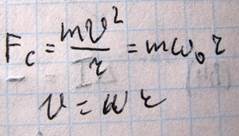 F_c = mv²/r = mω₀r
v = ωr